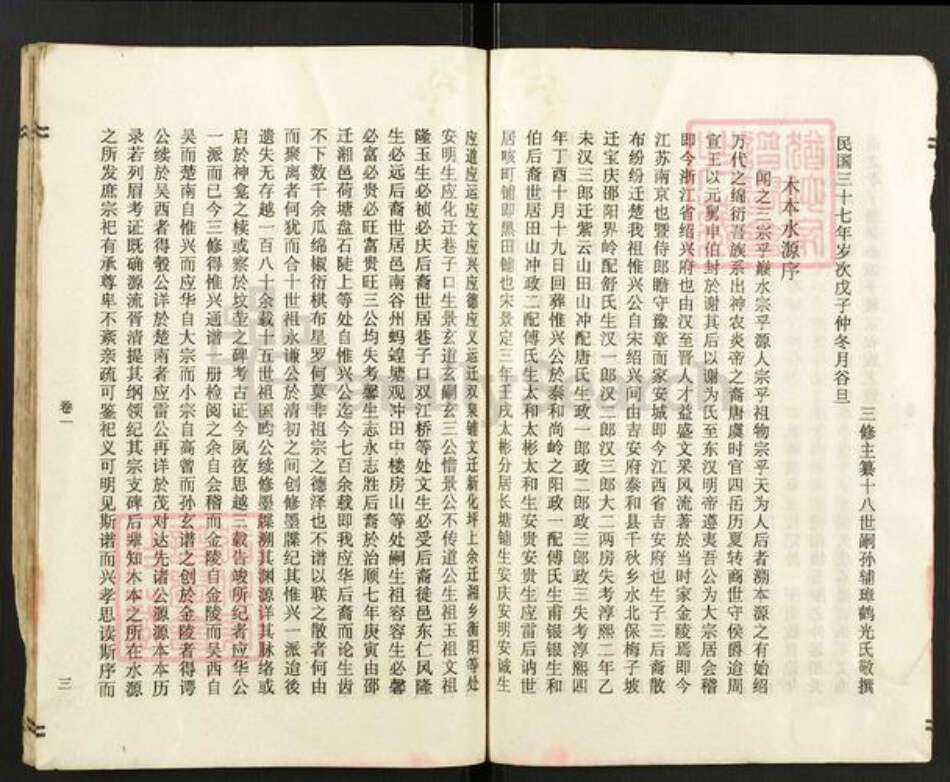 三修主纂十八世嗣孙辅璋鹤光氏敬撰
民国三十七年岁次戊子仲冬月谷旦
木本水源序
闻之三宗乎巅水宗乎源人宗乎祖物宗乎天为人后者溯本源之有始绍
万代之绵衍吾族系出神农炎帝之裔唐虞时官四岳历夏转商世守侯爵迨周
宣王以元舅申伯封於谢其后以谢为氏至东汉明帝遵夷吾公为大宗居会稽
即今浙江省绍兴府也由汉至晋人才益盛文采风流著於当时家金陵焉即今
江苏南京也暨侍郎瞻守豫章而家安城即今江西省吉安府也生子三后裔散
布纷纷迁楚我祖惟兴公自宋绍兴间由吉安府泰和县千秋乡水北保梅子坡
迁宝庆邵阳界岭配舒氏生汉一郎汉二郎汉三郎大二两房失考淳熙二年乙
未汉三郎迁紫云山田山冲配唐氏生政一郎政二郎政三郎政三失考淳熙四
年丁酉十月十九日回葬惟兴公於泰和尚岭之阳政一配傅氏生甫银银生和
伯后裔世居田山冲政二配傅氏生太和太彬太和生安贵安贵生应雷后讷世
居咳町铺即黑田铺也宋景定三年壬戌太彬分居长塘铺生安庆安明安诚生
应道应运应文应兴应德应义应运迁双泉铺文迁新化坪上余迁湘乡衡阳等处
安明生应化迁巷子口生景玄道玄嗣玄三公惜景公不传道公生祖玉祖文祖
隆玉生必祯必庆后裔世居巷子口双江桥等处文生必受后裔徙邑东仁风隆
生必远后裔世居邑南谷州蚂蝗塘观冲田中楼房山等处嗣生祖容容生必馨
必富必贵必旺富贵旺三公均失考馨生志永志胜后裔於治顺七年庚寅由邵
迁湘邑荷塘盘石陡上等处自惟兴公迄今七百余载即我应华后裔而论生齿
不下数千余瓜绵椒衍棋布星罗何莫非祖宗之德泽也不谱以联之散者何由
而聚离者何犹而合十世祖永谦公於清初之间创修墨牒纪其惟兴一派迨后
遗失无存越一百八十余载十五世祖国昀公续修墨牒溯其渊源详其脉络或
启於神龛之椟或察於坟茔之碑考古证今夙夜思越三载告竣所纪者应华公
一派而已今三修得惟兴通谱一册检阅之余自会稽而金陵自金陵而吴西自
吴而楚南自惟兴而应华自大宗而小宗自高曾而孙玄谱之创於金陵者得谔
公续於吴西者得毅公详於楚南者应雷公再详於茂对达先诸公源源本本历
录若列眉考证既确源流胥清提其纲领纪其宗支碑后辈知木本之所在水源
之所发庶宗祀有承尊卑不紊亲疏可鉴祀义可明见斯谱而兴孝思读斯序而
卷一
三